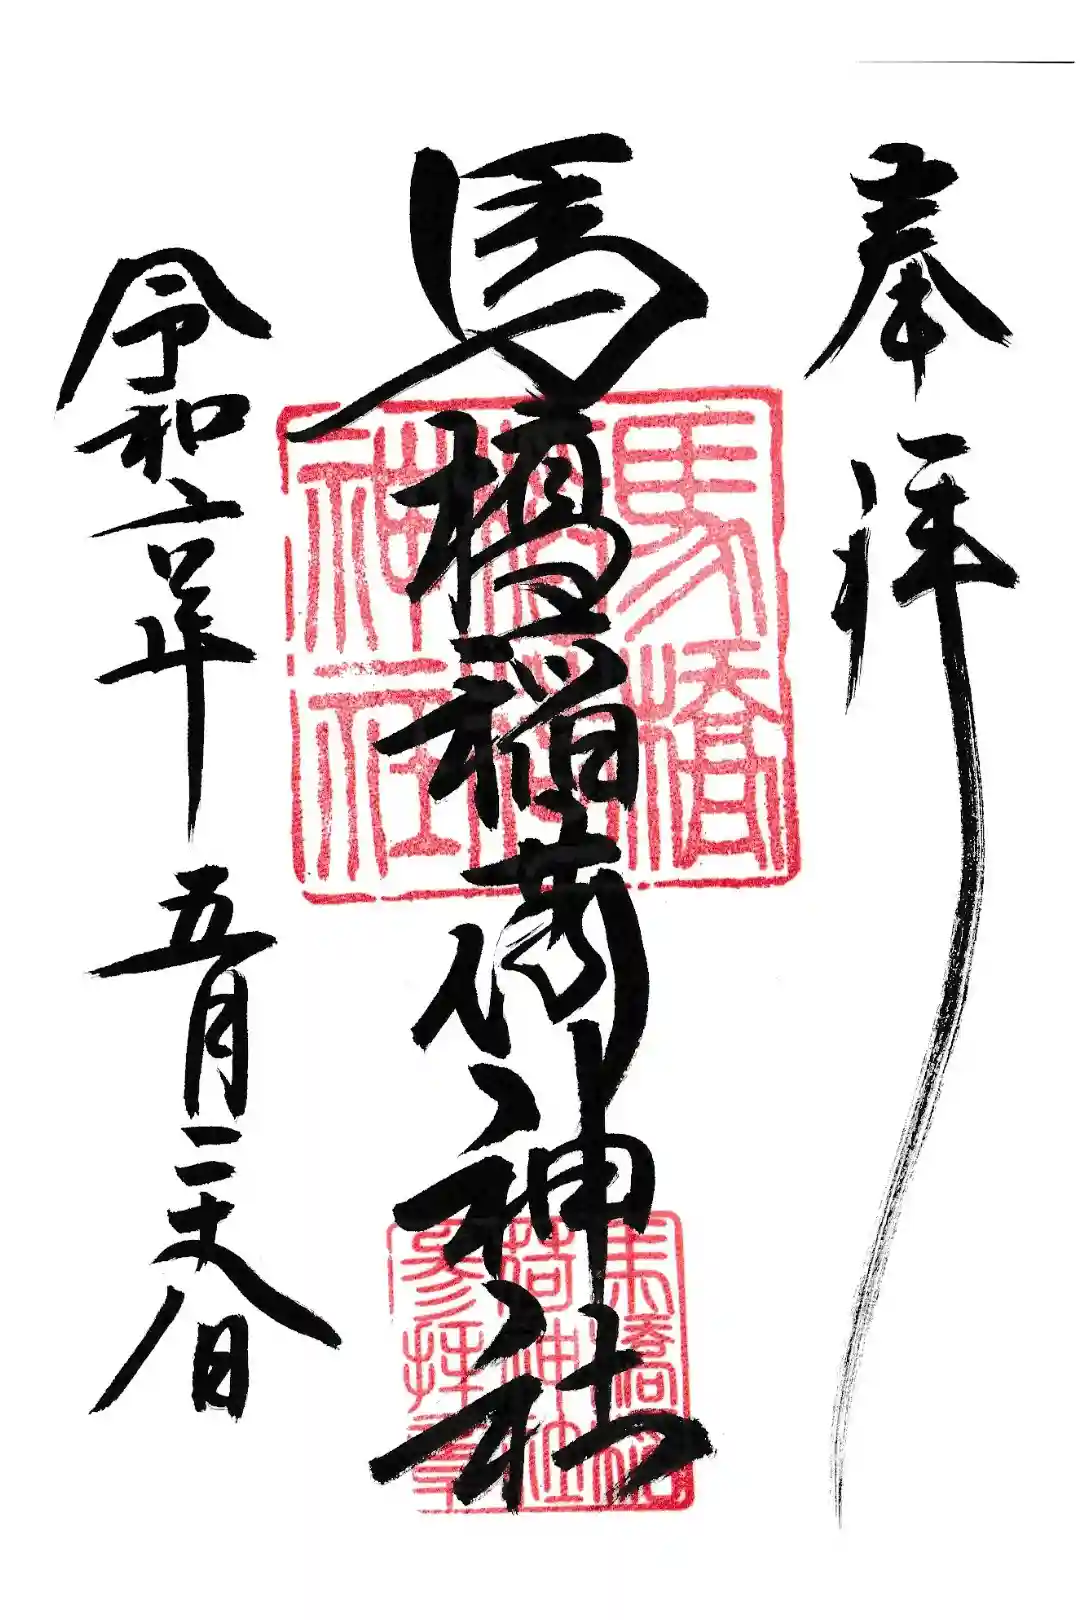 奉拝
馬橋稲荷神社
令和六年 五月二十八日
馬橋
稲荷
神社
馬橋稲
荷神社
参拝章